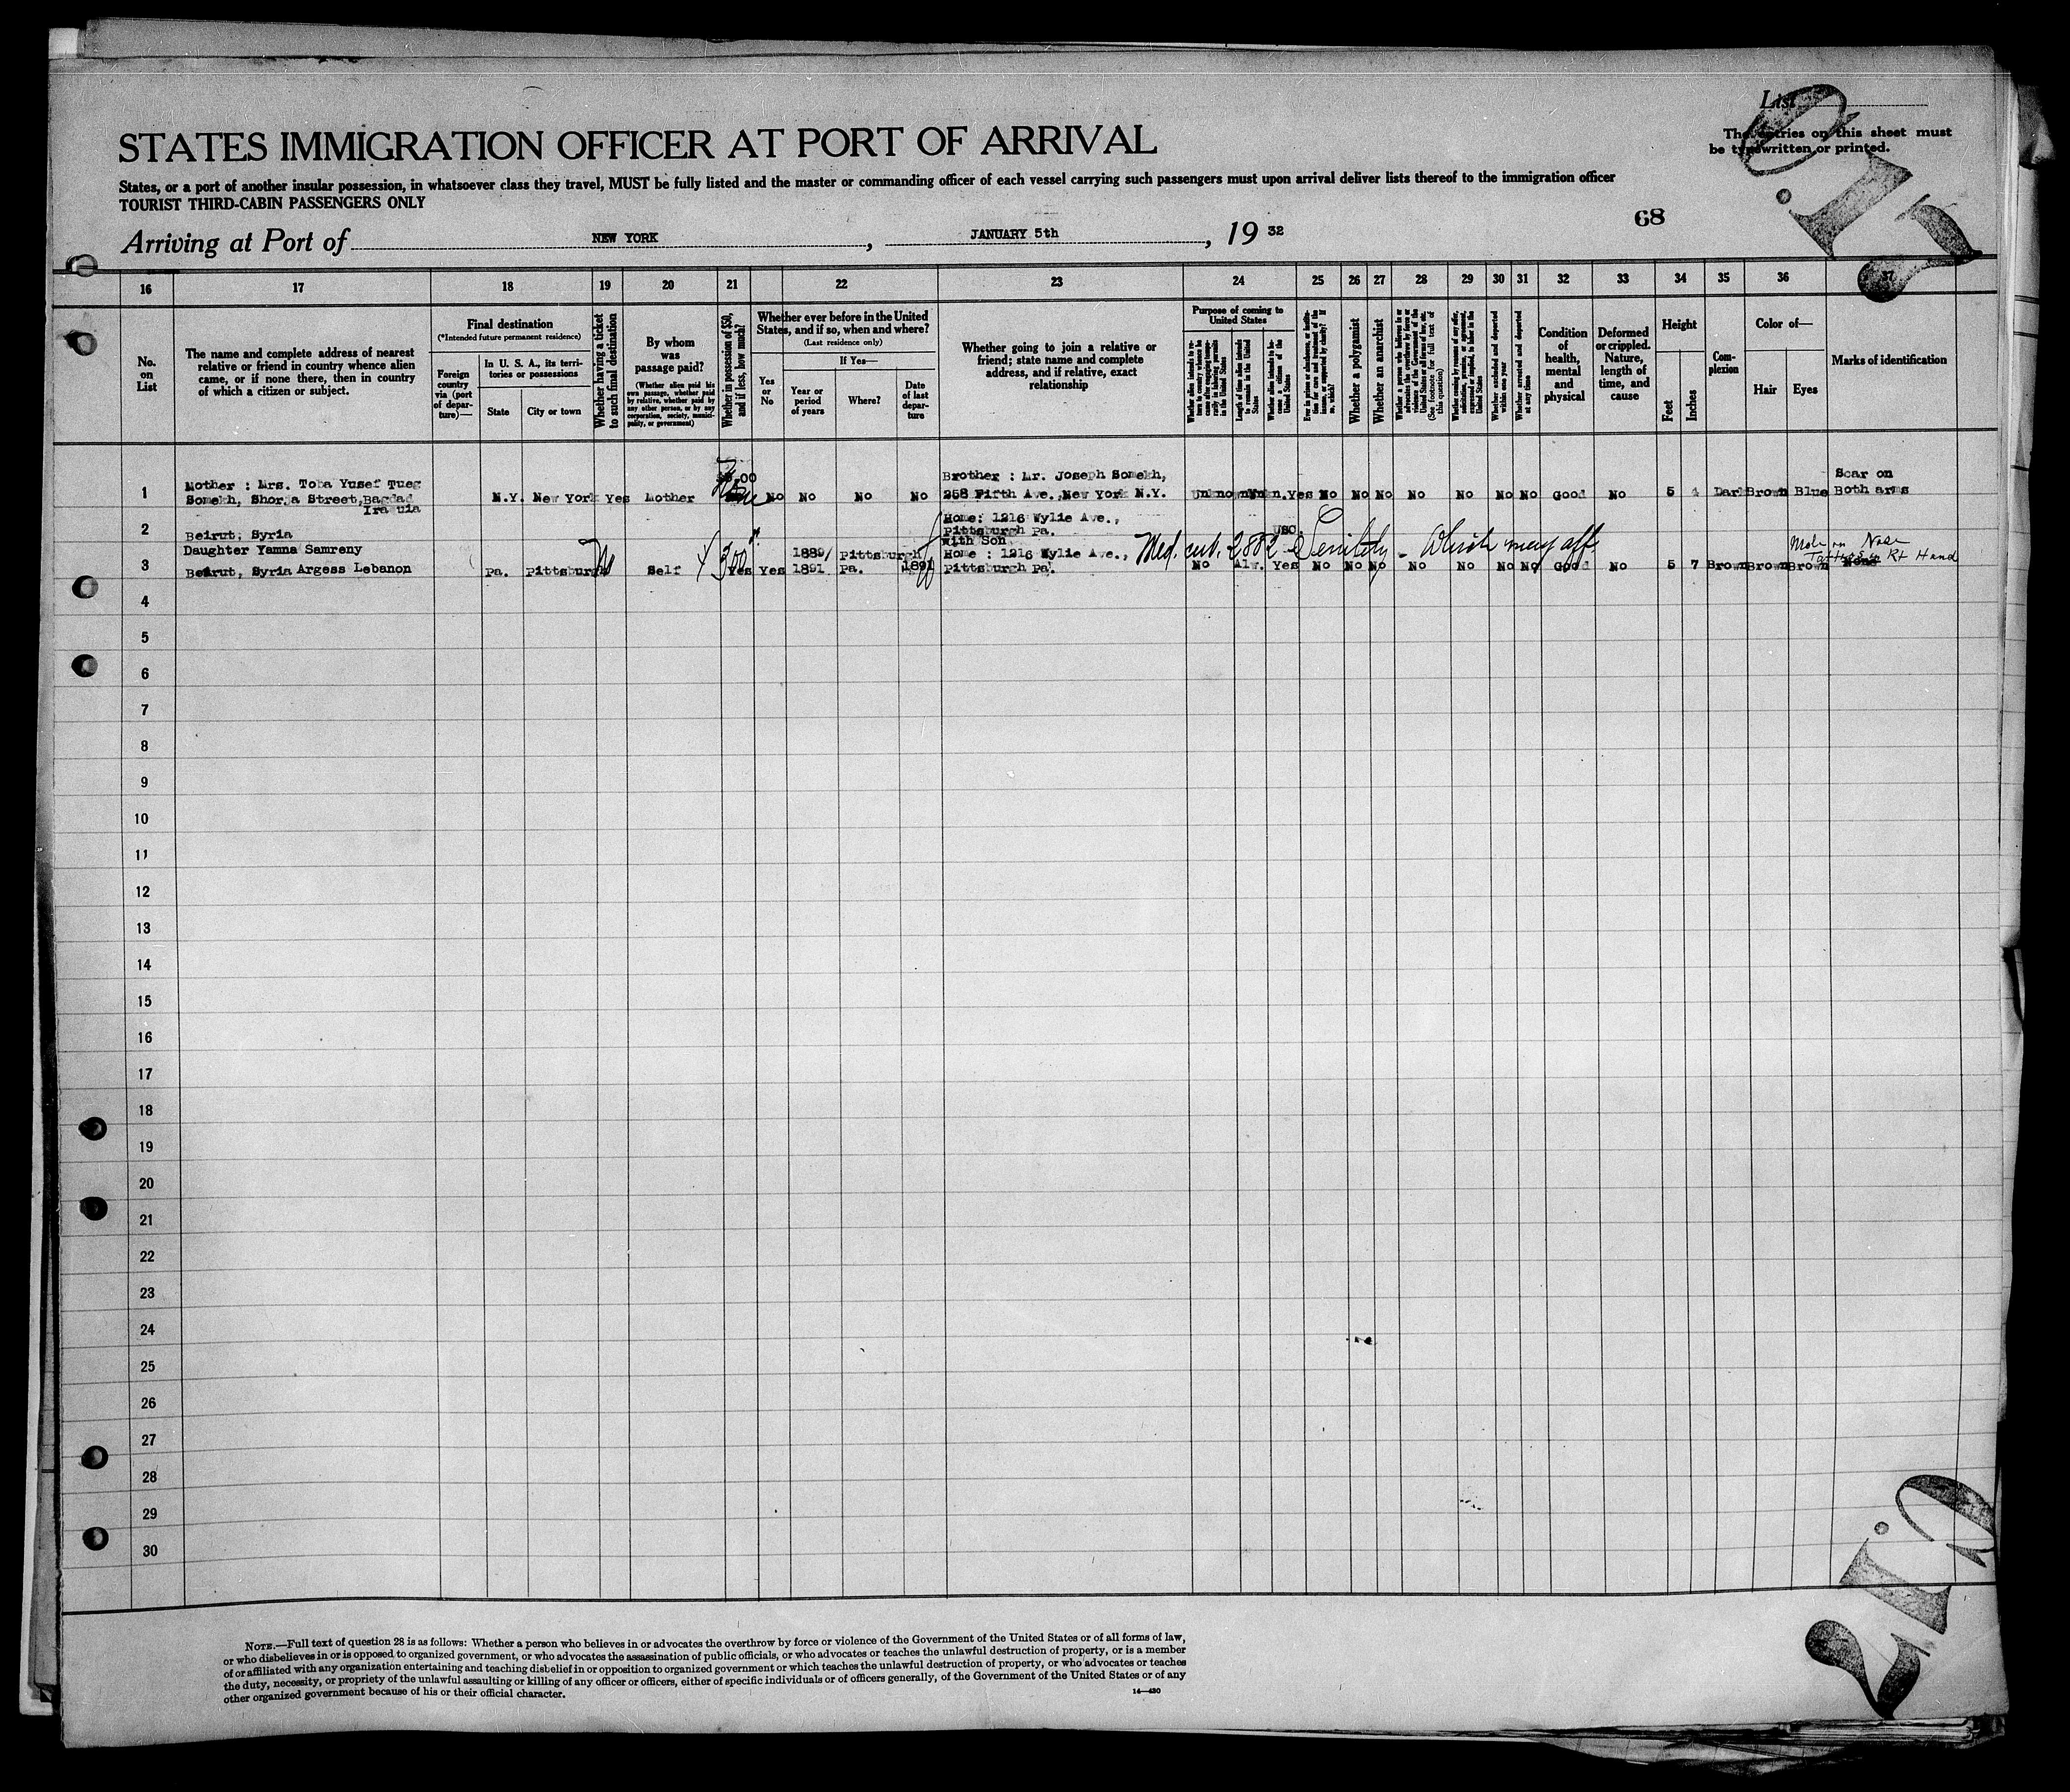 List
The entries on this sheet must
be typewritten or printed.
STATES IMMIGRATION OFFICER AT PORT OF ARRIVAL
States, or a port of another insular possession, in whatsoever class they travel, MUST be fully listed and the master or commanding officer of each vessel carrying such passengers must upon arrival deliver lists thereof to the immigration officer
TOURIST THIRD-CABIN PASSENGERS ONLY
68
Arriving at Port of NEW YORK, JANUARY 5th, 19 32
16 17 18 19 20 21 22 23 24 25 26 27 28 29 30 31 32 33 34 35 36 37
No.
on
List
The name and complete address of nearest
relative or friend in country whence alien
came, or if none there, then in country
of which a citizen or subject.
Final destination
(*Intended future permanent residence)
Foreign
country
via (port
of depar-
ture)—
In U. S. A., its terri-
tories or possessions
State
City or town
Whether having a ticket
to such final destination
By whom
was
passage paid?
(Whether alien paid his
own passage, whether paid
by relative, whether paid by
any other person, or by any
corporation, society, munici-
pality, or government)
Whether in possession of $50,
and if less, how much?
Whether ever before in the United
States, and if so, when and where?
(Last residence only)
Yes
or
No
If Yes—
Year or
period
of years
Where?
Date
of last
depar-
ture
Whether going to join a relative or
friend; state name and complete
address, and if relative, exact
relationship
Purpose of coming to
United States
Length of time alien intends
to remain in the United
States
Whether alien intends to be-
come a citizen of the
United States
Whether a polygamist
Whether an anarchist
(See footnote for full text of
this question)
Whether excluded and deported
within one year
Whether arrested and deported
at any time
Condition
of
health,
mental
and
physical
Deformed
or crippled.
Nature,
length of
time, and
cause
Height
Feet
Inches
Com-
plexion
Color of—
Hair
Eyes
Marks of identification
Mother : Mrs. Toba Yusef Tueg
Somekh, Shorja Street, Bagdad
Iraquia
1 N.Y. New York Yes Mother No No No No
Brother : Mr. Joseph Somekh,
258 Fifth Ave., New York N.Y.
Unknown Unkn. Yes No No No No No No No Good No 5 4 Dark Brown Blue
Scar on
Both arms
2 Beirut, Syria
Home: 1216 Wylie Ave.,
Pittsburgh Pa.
USC
Daughter Yamna Samreny
3 Beirut, Syria Argess Lebanon Pa. Pittsburgh No Self 300 Yes Yes
1889/
1891
Pittsburgh
Pa.
1891
With Son
Home : 1216 Wylie Ave.,
Pittsburgh Pa.
Med. cert. 2882 Senility - Which may aff
No Alw. Yes No No No No No No No Good No 5 7 Brown Brown Brown
Mole on Nose
Tattoos on Rt Hand
None
4
5
6
7
8
9
10
11
12
13
14
15
16
17
18
19
20
21
22
23
24
25
26
27
28
29
30
NOTE.—Full text of question 28 is as follows: Whether a person who believes in or advocates the overthrow by force or violence of the Government of the United States or of all forms of law,
or who disbelieves in or is opposed to organized government, or who advocates the assassination of public officials, or who advocates or teaches the unlawful destruction of property, or is a member
of or affiliated with any organization entertaining and teaching disbelief in or opposition to organized government or which teaches the unlawful destruction of property, or who advocates or teaches
the duty, necessity, or propriety of the unlawful assaulting or killing of any officer or officers, either of specific individuals or of officers generally, of the Government of the United States or of any
other organized government because of his or their official character.
14—430